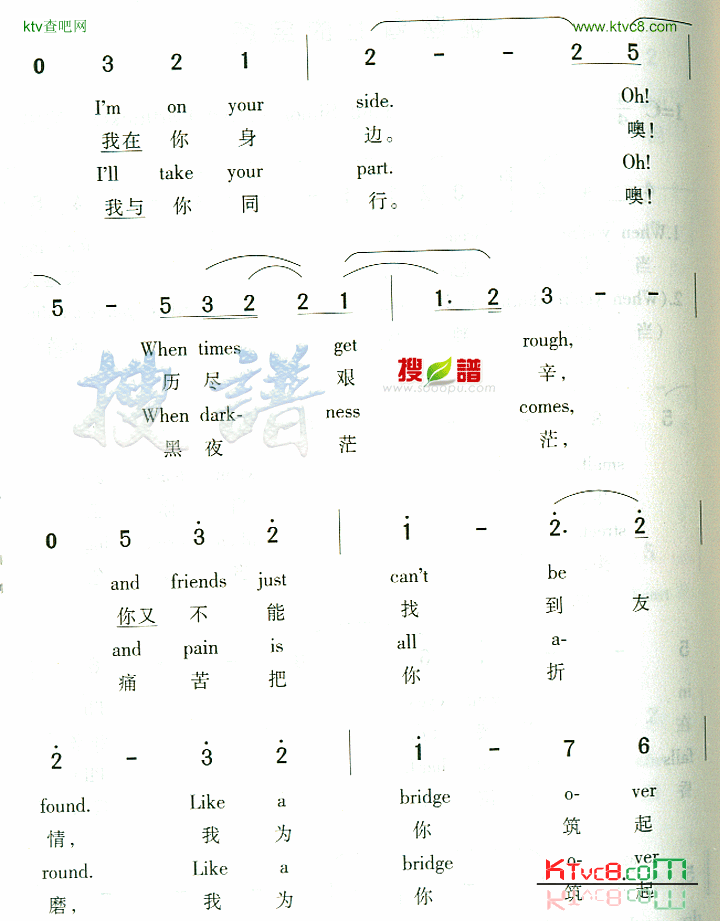 ktv查吧网 www.ktvc8.com
0 3 2 1 | 2 - - 2 5 |
I'm on your side. Oh!
我在 你 身 边。 噢!
I'll take your part. Oh!
我与 你 同 行。 噢!
5 - 5 3 2 2 1 | 1. 2 3 - - |
When times get rough,
历 尽 艰 辛,
When dark- ness comes,
黑 夜 茫 茫,
搜谱
搜谱
www.sooopu.com
0 5 3 2 | 1 - 2. 2 |
and friends just can't be
你又 不 能 找 到 友
and pain is all a-
痛 苦 把 你 折
2 - 3 2 | 1 - 7 6 |
found. Like a bridge o- ver
情, 我 为 你 筑 起
round. Like a bridge o- ver
磨, 我 为 你 筑 起
KTvc8.com